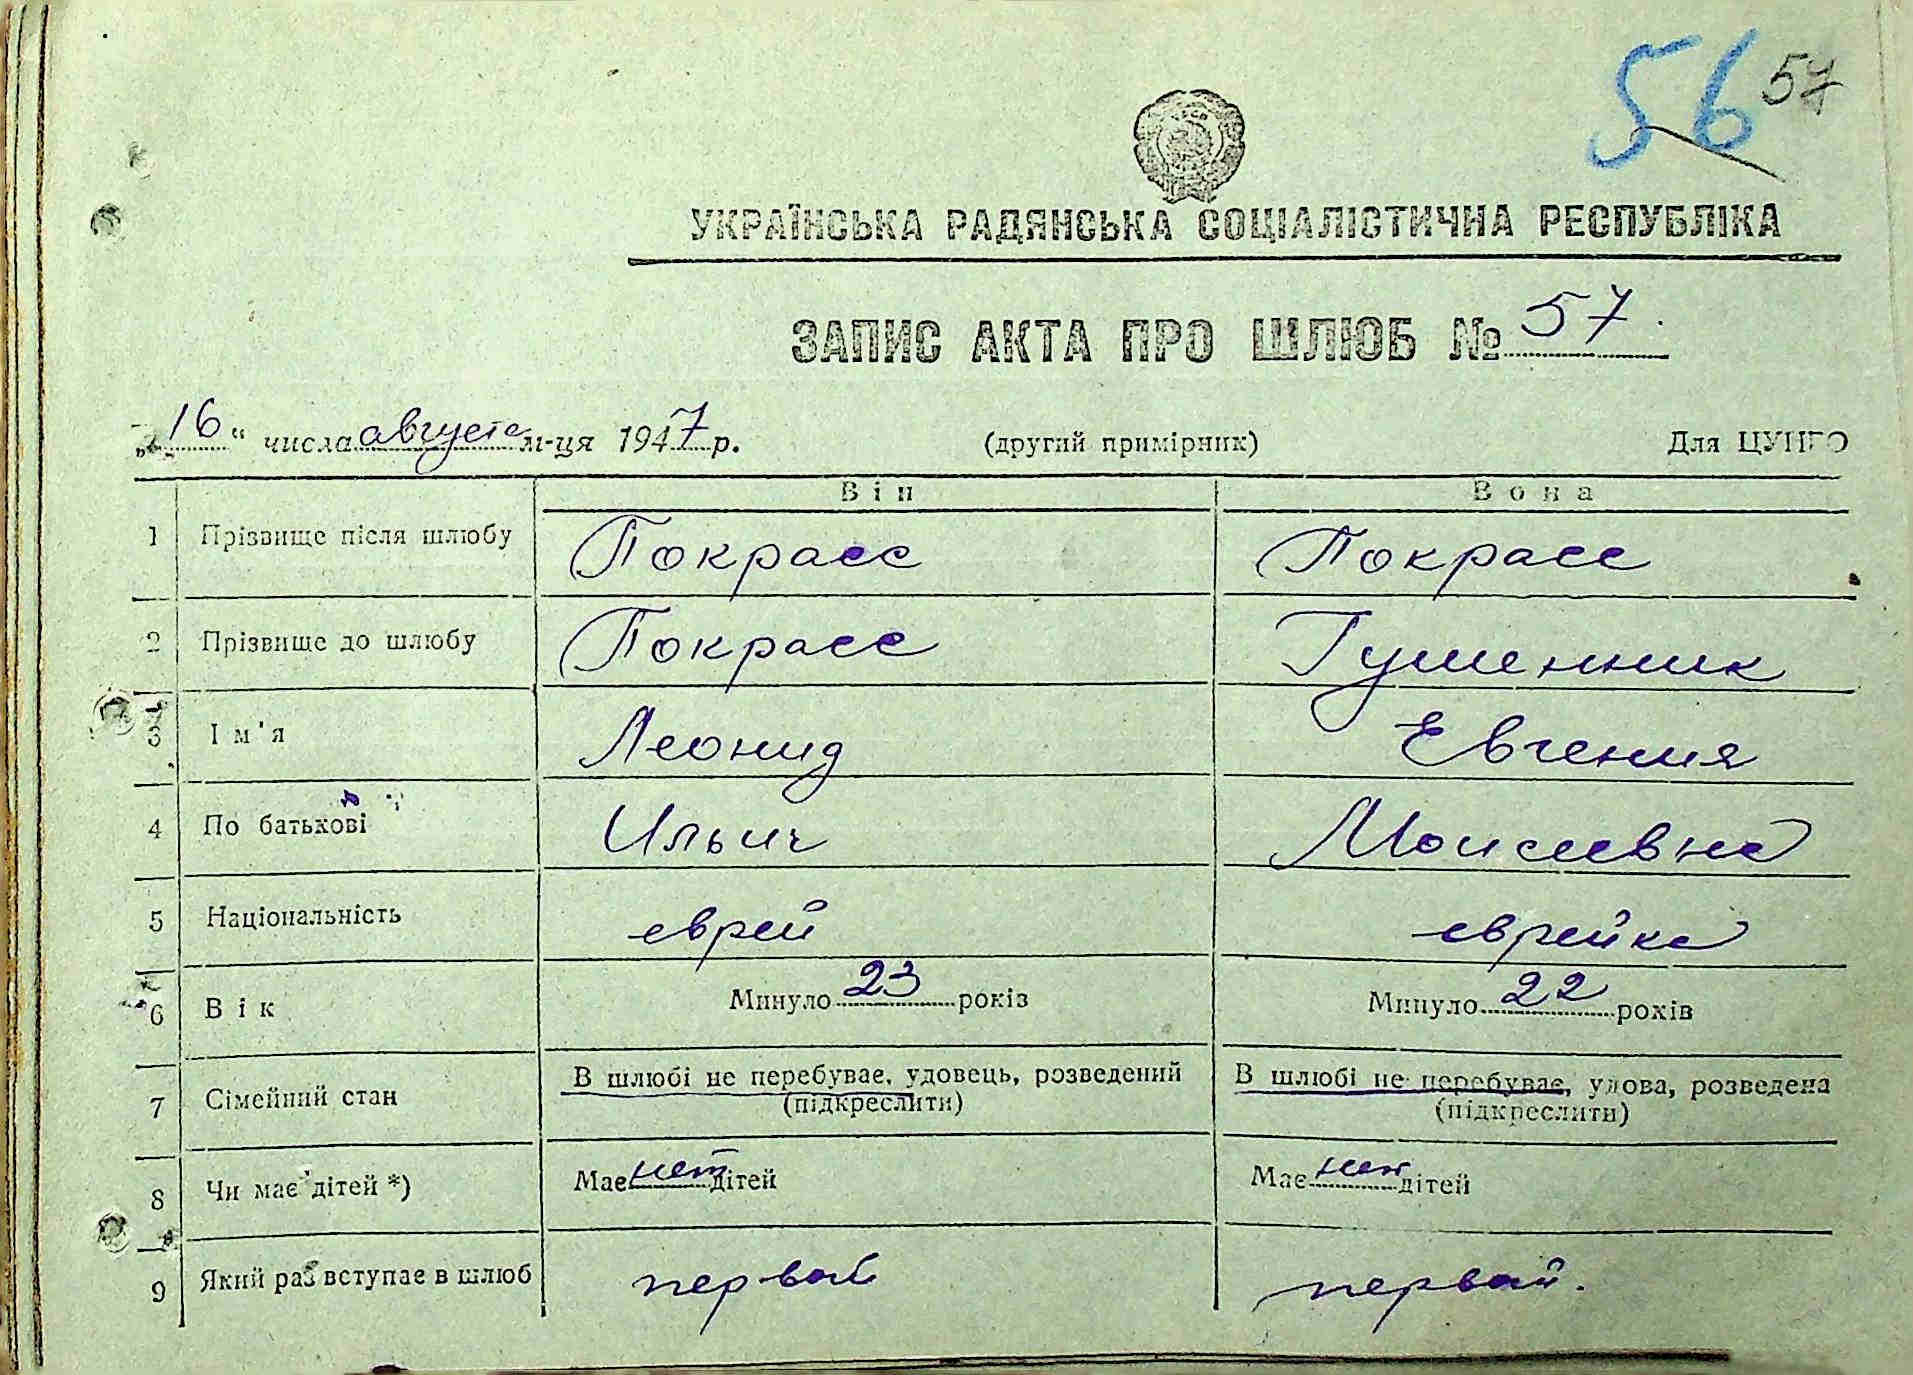 56 57
УКРАЇНСЬКА РАДЯНСЬКА СОЦІАЛІСТИЧНА РЕСПУБЛІКА
ЗАПИС АКТА ПРО ШЛЮБ № 57.
„16“ числа августа м-ця 1947 р. (другий примірник) Для ЦУНГО
Він Вона
1 Прізвище після шлюбу Покрасс Покрасс
2 Прізвище до шлюбу Покрасс Гушенник
3 Ім'я Леонид Евгения
4 По батькові Ильич Моисеевна
5 Національність еврей еврейка
6 Вік Минуло 23 років Минуло 22 років
7 Сімейний стан В шлюбі не перебуває, удовець, розведений В шлюбі не перебуває, удова, розведена
(підкреслити) (підкреслити)
8 Чи має дітей *) Має нет дітей Має нет дітей
9 Який раз вступає в шлюб первый первый.